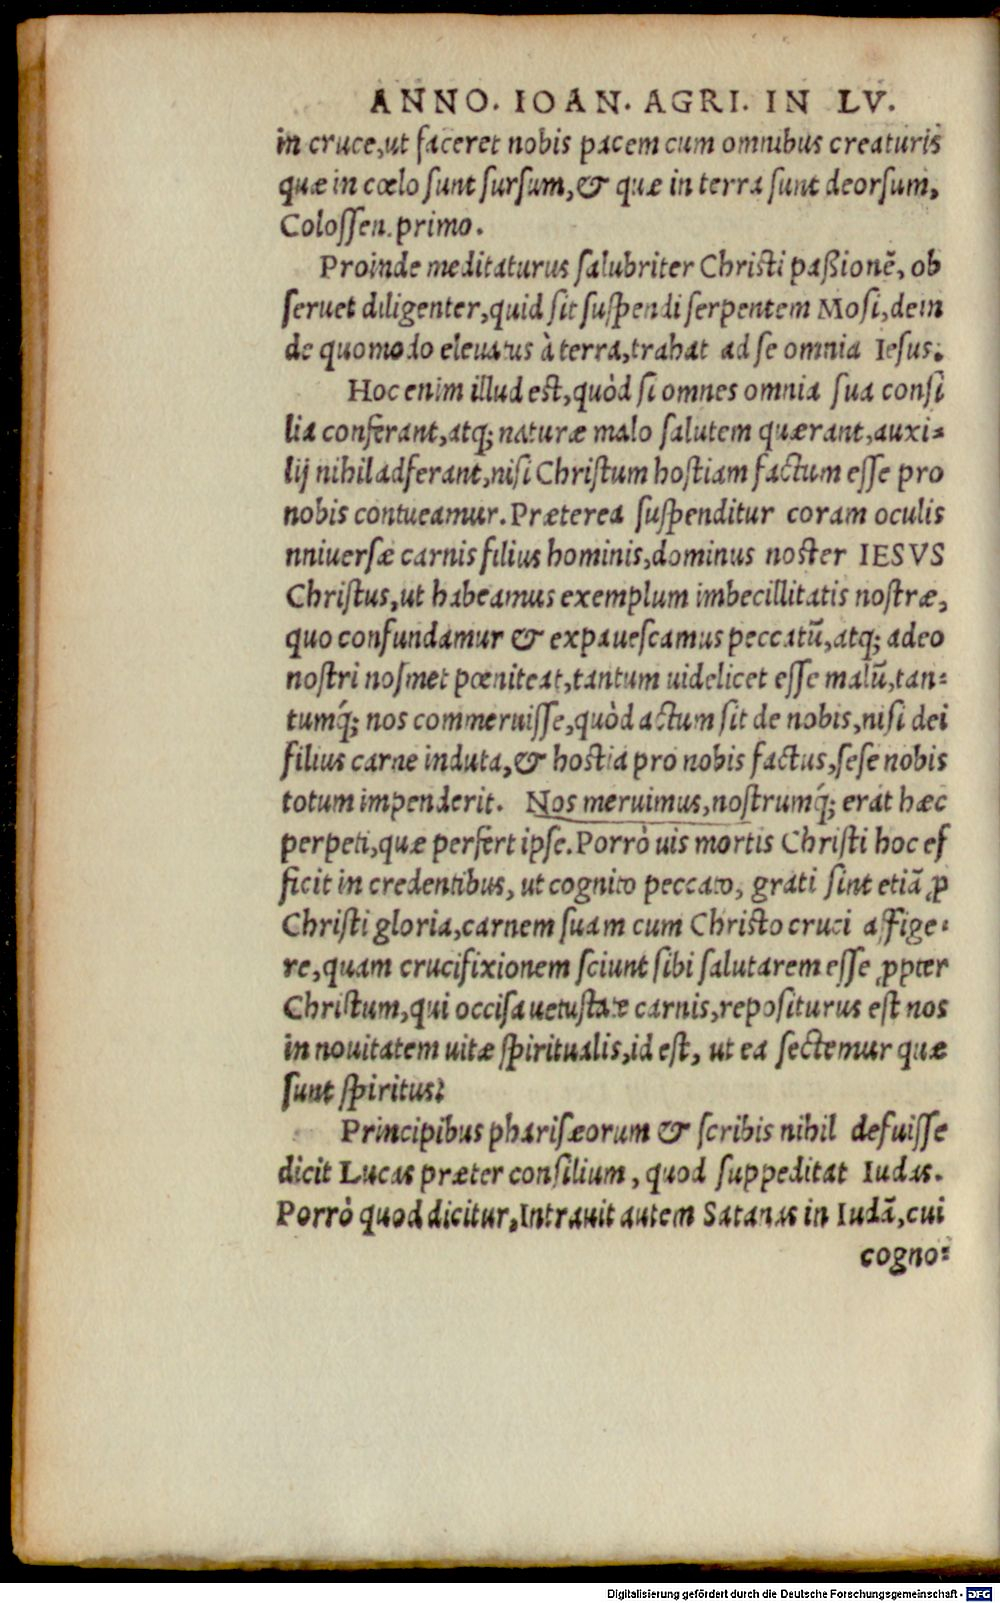 ANNO. IOAN. AGRI. IN LV.
in cruce,ut faceret nobis pacem cum omnibus creaturis
quæ in cœlo sunt sursum,& quæ in terra sunt deorsum,
Colossen.primo.
Proinde meditaturus salubriter Christi paßionẽ, ob
seruet diligenter,quid sit suspendi serpentem Mosi,dein
de quomodo eleuatus à terra,trahat ad se omnia Iesus.
Hoc enim illud est,quòd si omnes omnia sua consi
lia conferant,atq; naturæ malo salutem quærant,auxi-
lij nihil adferant,nisi Christum hostiam factum esse pro
nobis contueamur. Præterea suspenditur coram oculis
nniuersæ carnis filius hominis,dominus noster IESVS
Christus,ut habeamus exemplum imbecillitatis nostræ,
quo confundamur & expauescamus peccatũ,atq; adeo
nostri nosmet pœniteat,tantum uidelicet esse malũ,tan-
tumq́; nos commeruisse,quòd actum sit de nobis,nisi dei
filius carne induta,& hostia pro nobis factus,sese nobis
totum impenderit. Nos meruimus,nostrumq́; erat hæc
perpeti,quæ perfert ipse. Porrò uis mortis Christi hoc ef
ficit in credentibus, ut cognito peccato, grati sint etiã ꝓ
Christi gloria,carnem suam cum Christo cruci affige-
re,quam crucifixionem sciunt sibi salutarem esse ꝓpter
Christum,qui occisa uetustate carnis,repositurus est nos
in nouitatem uitæ spiritualis,id est, ut ea sectemur quæ
sunt spiritus?
Principibus pharisæorum & scribis nihil defuisse
dicit Lucas præter consilium, quod suppeditat Iudas.
Porrò quod dicitur,Intrauit autem Satanas in Iudã,cui
cogno-
Digitalisierung gefördert durch die Deutsche Forschungsgemeinschaft - DFG